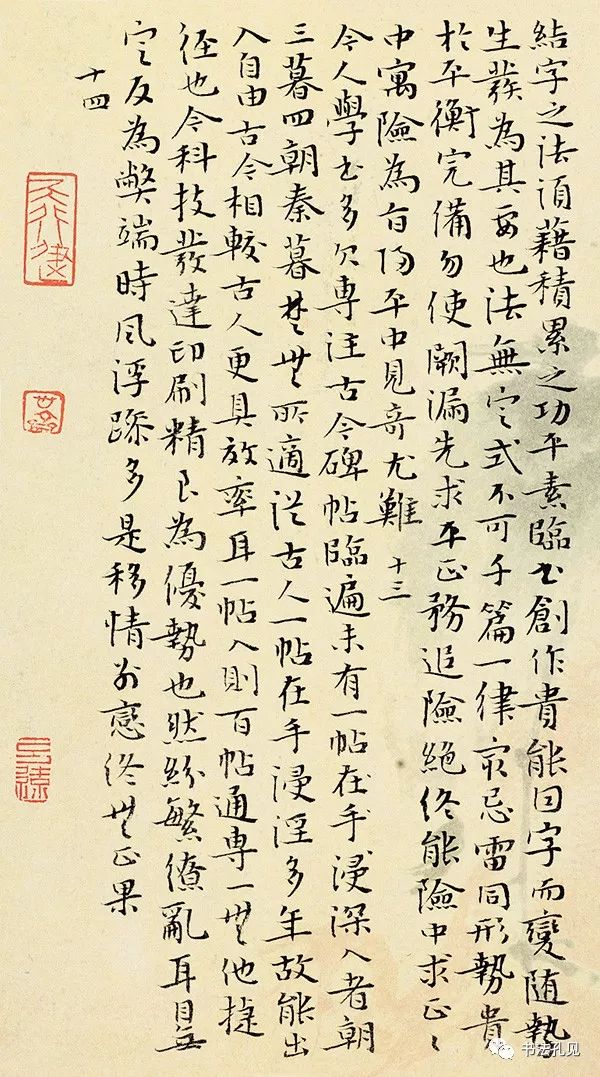 結字之法須藉積累之功平素臨書創作貴能因字而變随勢
生發為其要也法無定式不可千篇一律最忌雷同形勢貴
於平衡完備勿使闕漏先求平正務追險絕終能險中求正〻
中寓險為平中見奇尤難 十三
今人學書多欠專注古今碑帖臨遍未有一帖在手浸深入者朝
三暮四朝秦暮楚無所適從古人一帖在手浸淫多年故能出
入自由古今相較古人更具效率耳一帖入則百帖通專一無他捷
徑也今科技發達印刷精良為優勢也然紛繁繚亂耳目無
定反為弊端時風浮躁多是移情別戀終無正果
十四
天行健
书法孔见